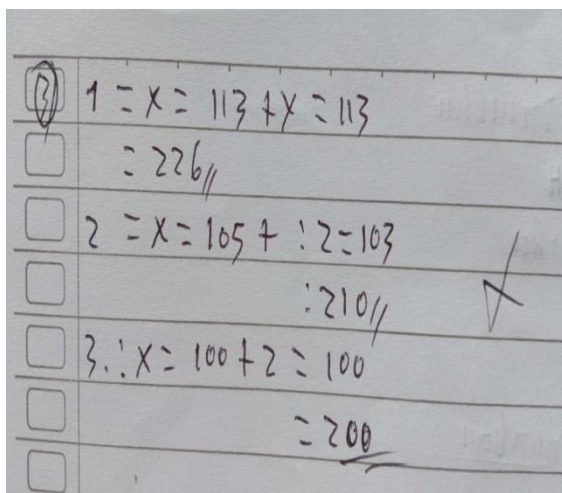 3
1 = x = 113 + x = 113
= 226
2 = x = 105 + : 2 = 103
: 210
3. : x = 100 + 2 = 100
= 200